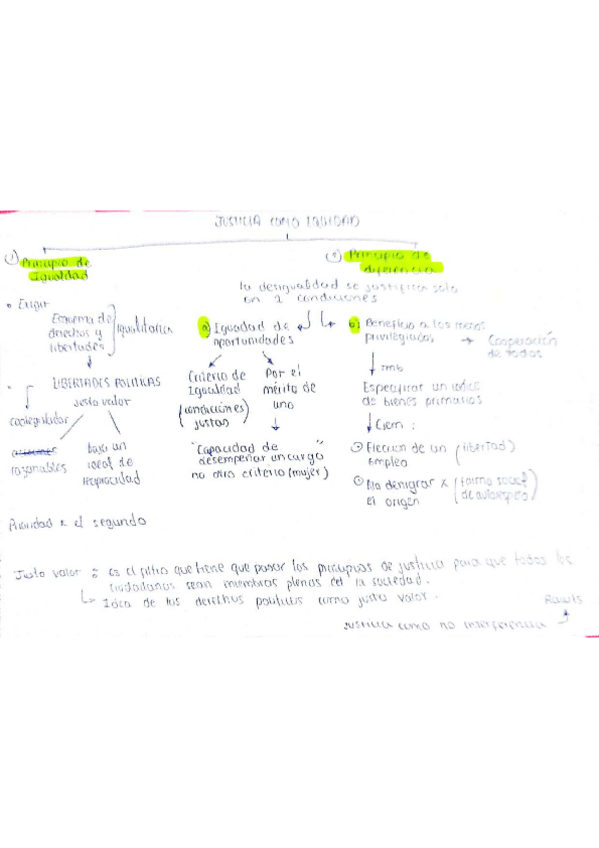 JUSTICIA COMO EQUIDAD
① Principio de
Igualdad
② Principio de
diferencia
la desigualdad se justifica solo
en 2 condiciones
• Exigir
Esquema de
derechos y
libertades
Igualitarica
LIBERTADES POLITICAS
justo valor
colegislador
razonables
bajo un
ideal de
reciprocidad
a) Igualdad de
oportunidades
Criterio de
Igualdad
(condiciones)
justas
Por el
mérito de
uno
"Capacidad de "
desempeñar un cargo
no otro criterio (mujer)
b) Beneficio a los menos
privilegiados → Cooperación
de todos
Especificar un indice
de bienes primarios
Ejem :
Eleccion de un (libertad)
Empleo
No denigrar x (forma social)
El origen de autorespeto
Prioridad x el segundo
Justo valor : es el filtro que tiene que pasar los principios de justicia para que todos los
ciudadanos sean miembros plenos de la sociedad.
↳ Idea de los derechos politicos como justo valor.
Rawls
justicia como no interferencia